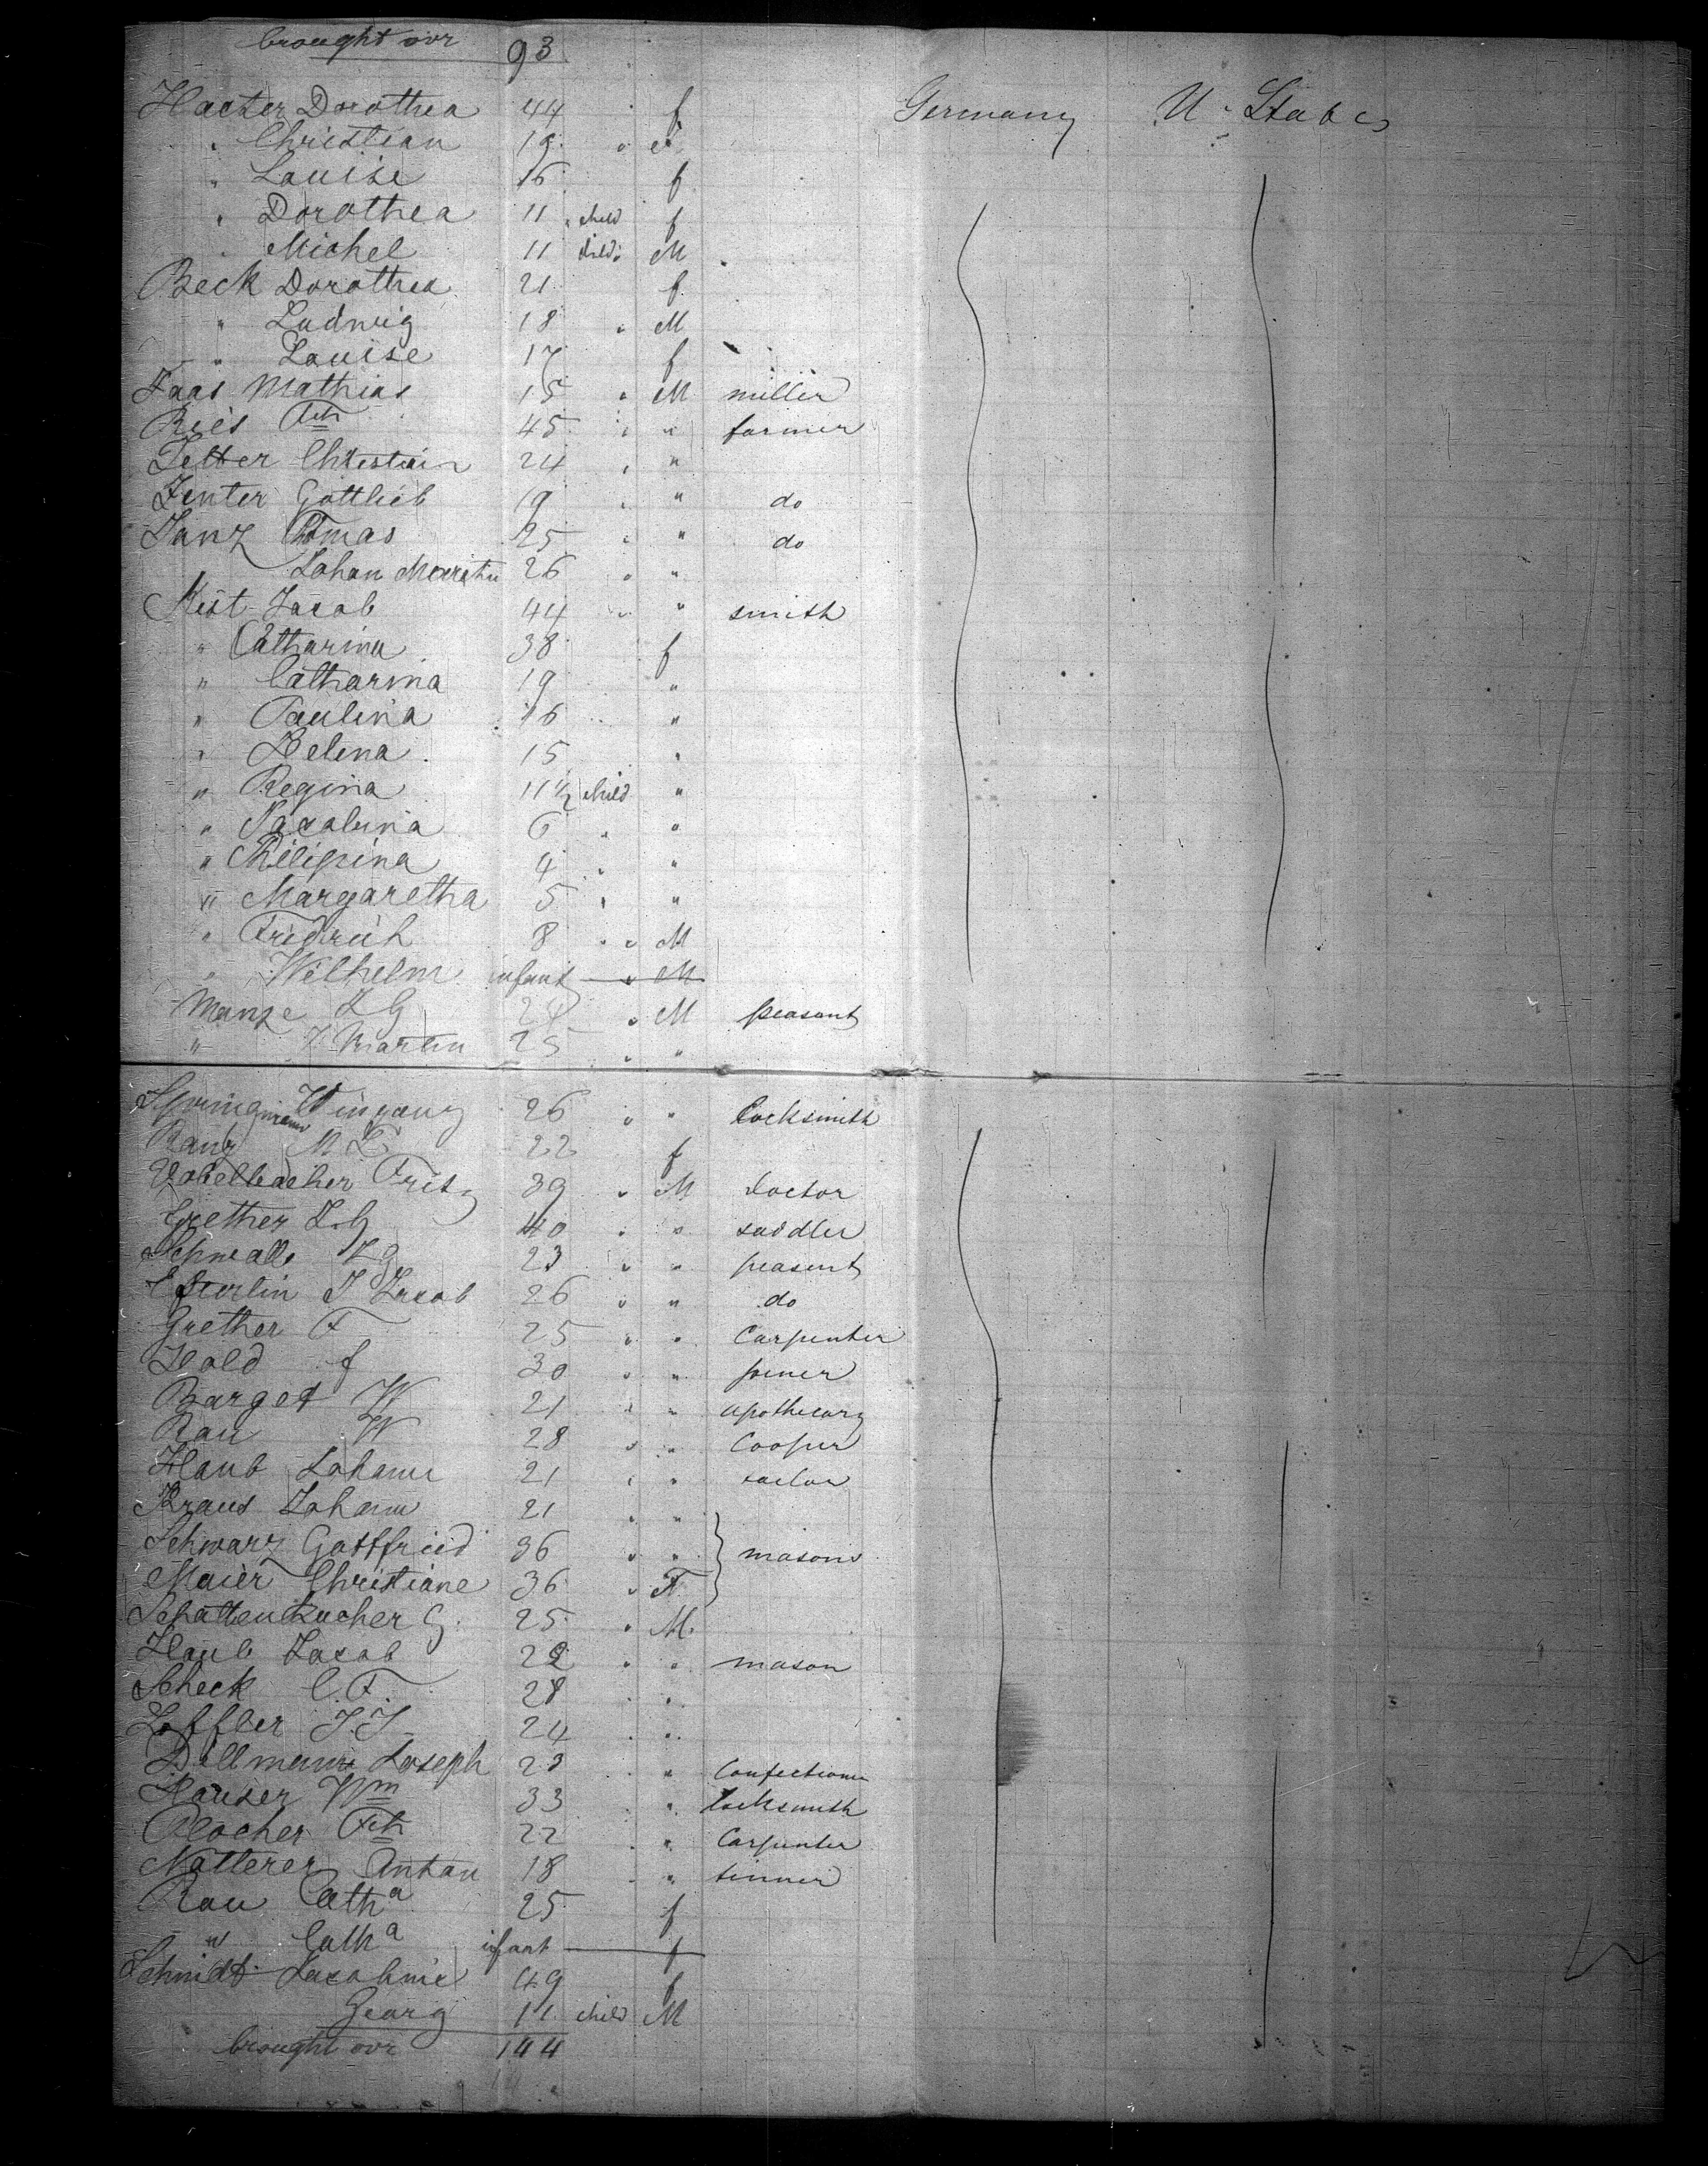 brought ovr 93
Harter Dorothea 44 f Germany U. States
" Christian 19 " M
" Louise 16 f
" Dorothea 11 child f
" Michel 11 child M
Beck Dorothea 21 f
" Ludwig 18 " M
" Louise 17 f
Faas Mathias 15 " M miller
Ries Frh 45 " " farmer
Christian 24 " "
Zenter Gottlieb 19 " " do
Janz Thomas 25 " " do
Johan 26 " "
Kist Jacob 44 " " smith
" Catharina 38 f
" Catharina 19 "
" Paulina 16 "
" Helena 15 "
" Regina 11 1/2 child "
" Jacobina 6 " "
" Philipina 4 " "
" Margaretha 5 " "
" Fridrich 8 " " M
" Wilhelm infant " M
Manze J G 24 " M peasant
" J Martin 25 " "
Springmann 26 " " locksmith
Ranz M L 22 f
Fritz 39 " M doctor
Grether J. G 40 " " saddler
J g 23 " " peasent
J Jacob 26 " " do
Grether F 25 " " Carpenter
Hold f 30 " " joiner
Barget W 21 " " apothecary
Rau W 28 " " Cooper
Haub Johann 21 " " sailor
Kraus Johann 21 " "
Schwarz Gottfried 36 " " masons
Maier Christiane 36 " F
G. 25 " M.
Haub Jacob 22 " " mason
Scheck C. F. 28 " "
Loffler J. J. 24 " "
Dillmann Joseph 23 " confectioner
Hauser Wm 33 " locksmith
Blocher Frh 22 " Carpenter
Natterer Anton 18 " tinner
Rau Catha 25 f
" Catha infant f
Schmidt Jacobine 49 f
Georg 11 child M
brought ovr 144